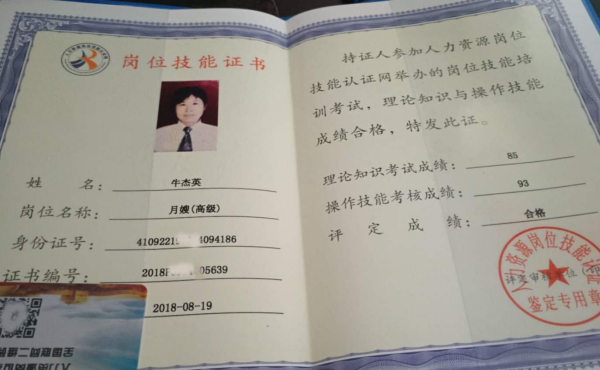 岗位技能证书
姓 名： 牛杰英
岗位名称： 月嫂(高级)
身份证号： 41092219 4094186
证书编号： 2018 05639
2018-08-19
全国联网二维
持证人参加人力资源岗位
技能认证网举办的岗位技能培
训考试，理论知识与操作技能
成绩合格，特发此证。
理论知识考试成绩： 85
操作技能考核成绩： 93
评 定 成 绩： 合格
人力资源岗位技能认证
鉴定专用章